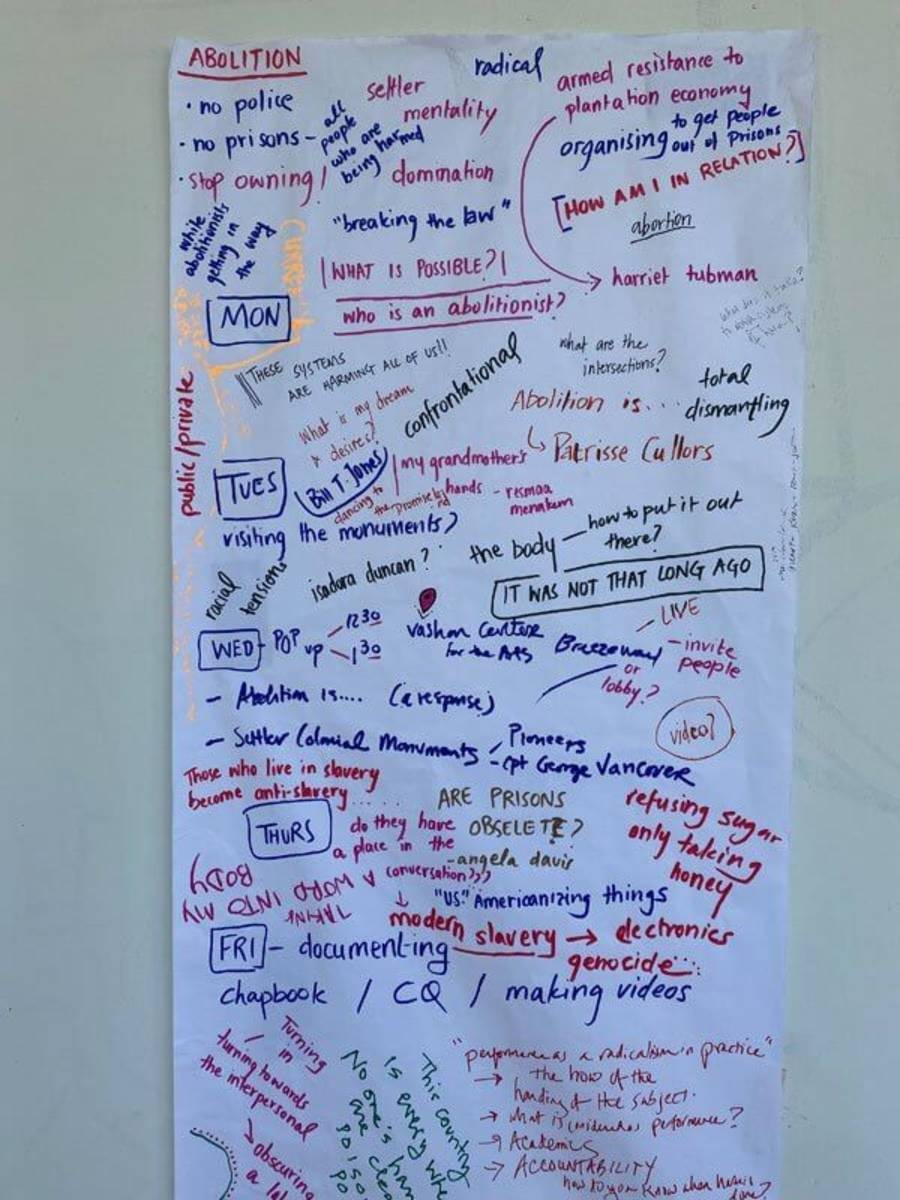 ABOLITION
• no police
• no prisons –
all people who are being harmed
• stop owning /
settler mentality
domination
radical
armed resistance to
plantation economy
organising to get people
out of prisons
[HOW AM I IN RELATION?]
abortion
→ harriet tubman
while abolitionists getting in the way
"breaking the law"
| WHAT IS POSSIBLE? |
who is an abolitionist?
MON
public/private
THESE SYSTEMS
ARE HARMING ALL OF US!!
What is my dream
& desires?
confrontational
what are the
intersections?
Abolition is...
total
dismantling
↳ Patrisse Cullors
TUES
Bill T. Jones
dancing to
the promised
my grandmother's
hands - resmaa
menakem
visiting the monuments?
racial
tensions
isadora duncan?
the body
how to put it out
there?
IT WAS NOT THAT LONG AGO
WED – POP up
1230
130
Vashon Centre
for the Arts
Breezeway
or
lobby?
– LIVE
– invite
people
– Abolition is.... (a response)
– Settler Colonial Monuments
Pioneers
– Cpt George Vancover
video?
Those who live in slavery
become anti-slavery.....
THURS
do they have
a place in the
conversation???
ARE PRISONS
OBSELETE?
-angela davis
refusing sugar
only taking
honey
TAKING
A WORD INTO MY
BODY
"US." Americanizing things
modern slavery → electronics
genocide...
FRI – documenting
chapbook / CQ / making videos
Turning
in
turning towards
the interpersonal
obscuring
a
This country
is every
No one's
"performance as a radicalism in practice"
→ the how of the
handing of the subject.
→ what is considered performance?
→ Academics
→ ACCOUNTABILITY
how do you know when